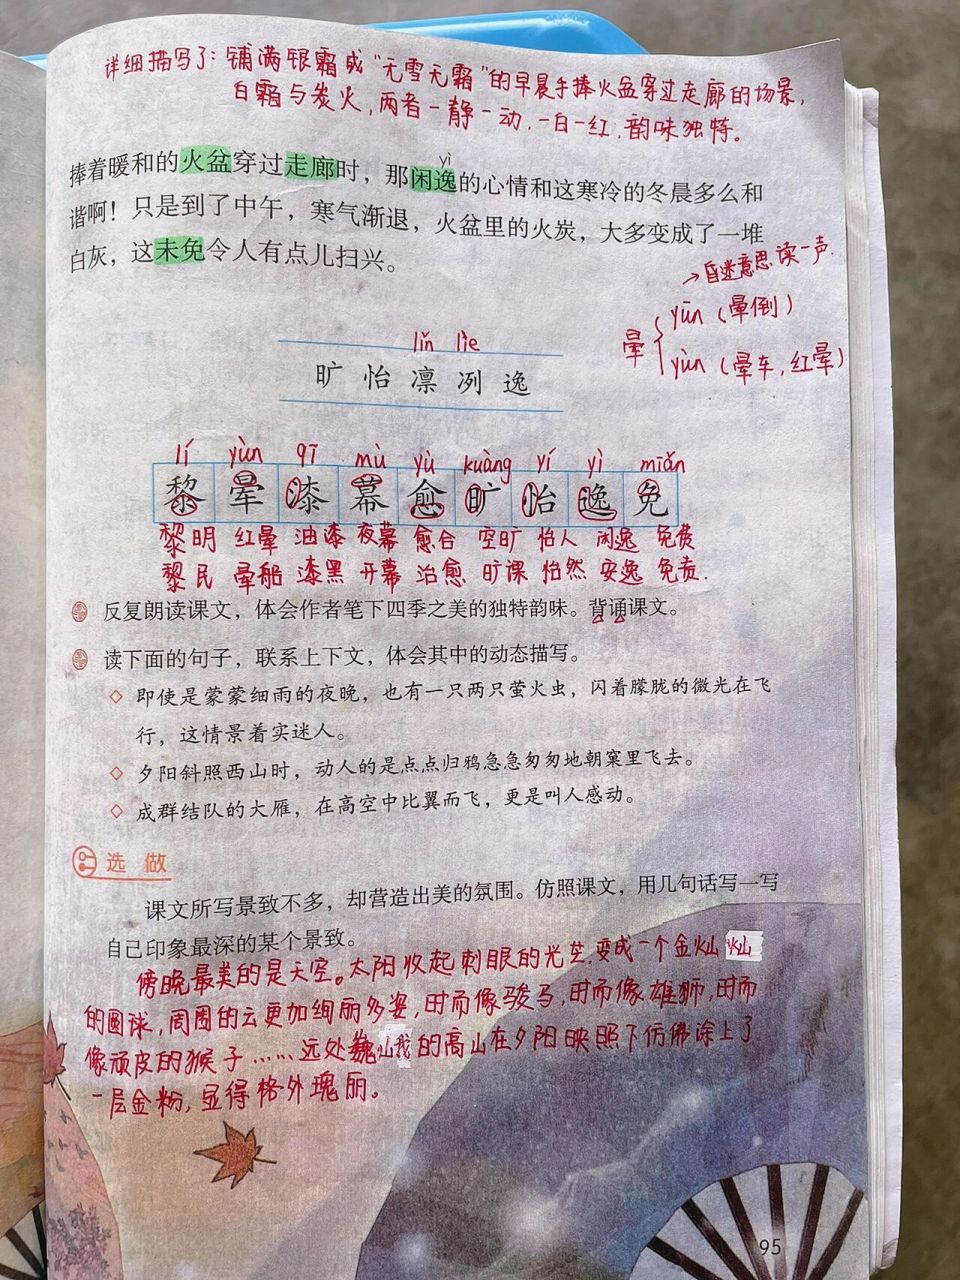 详细描写了：铺满银霜或“无雪无霜”的早晨手捧火盆穿过走廊的场景，
白霜与炭火，两者一静一动，一白一红，韵味独特。
yì
捧着暖和的火盆穿过走廊时，那闲逸的心情和这寒冷的冬晨多么和
谐啊！只是到了中午，寒气渐退，火盆里的火炭，大多变成了一堆
白灰，这未免令人有点儿扫兴。
→昏迷意思读一声.
晕 yūn（晕倒）
yùn（晕车，红晕）
lǐn liè
旷 怡 凛 冽 逸
lí yùn qī mù yù kuàng yí yì miǎn
黎 晕 漆 幕 愈 旷 怡 逸 免
黎明 红晕 油漆 夜幕 愈合 空旷 怡人 闲逸 免费
黎民 晕船 漆黑 开幕 治愈 旷课 怡然 安逸 免责.
反复朗读课文，体会作者笔下四季之美的独特韵味。背诵课文。
读下面的句子，联系上下文，体会其中的动态描写。
◇ 即使是蒙蒙细雨的夜晚，也有一只两只萤火虫，闪着朦胧的微光在飞
行，这情景着实迷人。
◇ 夕阳斜照西山时，动人的是点点归鸦急急匆匆地朝窠里飞去。
◇ 成群结队的大雁，在高空中比翼而飞，更是叫人感动。
选做
课文所写景致不多，却营造出美的氛围。仿照课文，用几句话写一写
自己印象最深的某个景致。
傍晚最美的是天空。太阳收起刺眼的光芒，变成一个金灿灿
的圆球，周围的云更加绚丽多姿，时而像骏马，时而像雄狮，时而
像顽皮的猴子……远处巍峨的高山在夕阳映照下仿佛涂上了
一层金粉，显得格外瑰丽。
95